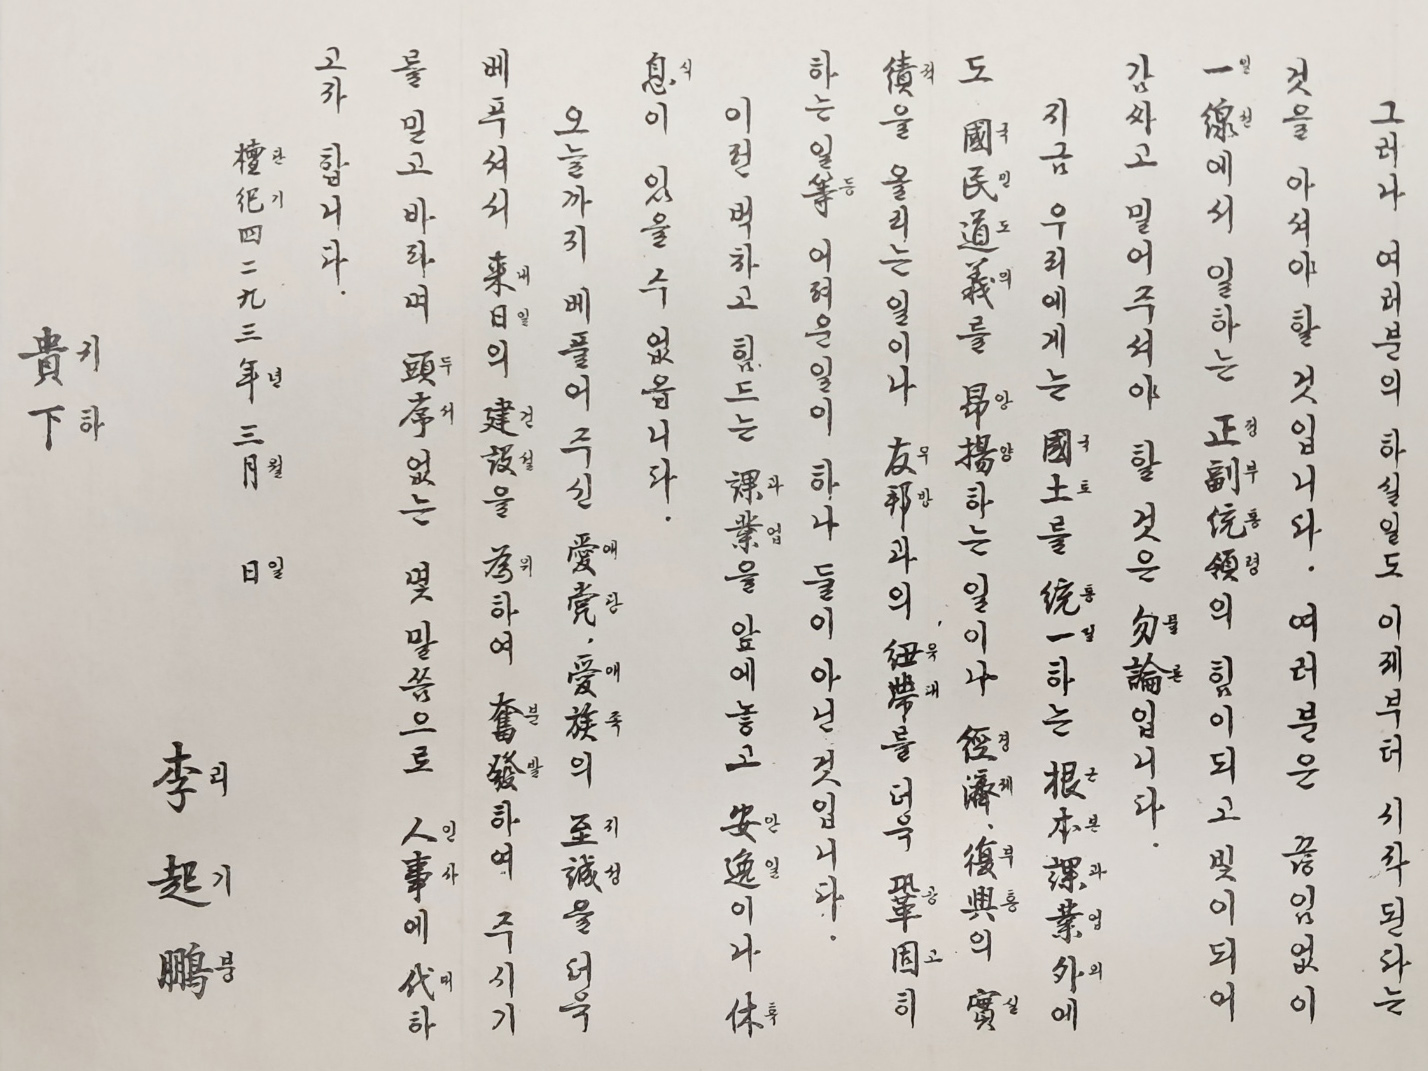 그러나 여러분의 하실일도 이제부터 시작된다는
것을 아셔야 할 것입니다. 여러분은 끊임없이
一線에서 일하는 正副統領의 힘이되고 빛이되어
일선 정부통령
감싸고 밀어주셔야 할 것은 勿論입니다.
물론
지금 우리에게는 國土를 統一하는 根本課業外에
국토 통일 근본과업외
도 國民道義를 昻揚하는 일이나 經濟、復興의 實
국민도의 앙양 경제 부흥 실
績을 올리는 일이나 友邦과의 紐帶를 더욱 鞏固히
적 우방 뉴대 공고
하는일等 어려운일이 하나 둘이 아닌 것입니다.
등
이런 벅하고 힘드는 課業을 앞에놓고 安逸이나 休
과업 안일 휴
息이 있을 수 없읍니다.
식
오늘까지 베풀어 주신 愛党、愛族의 至誠을 더욱
애당 애족 지성
베푸셔서 來日의 建設을 為하여 奮發하여 주시기
내일 건설 위 분발
를 믿고 바라며 頭序없는 몇 말씀으로 人事에 代하
두서 인사 대
고자 합니다.
檀紀四二九三年 三月 日
단기 년 월 일
李起鵬
리기붕
貴下
귀하